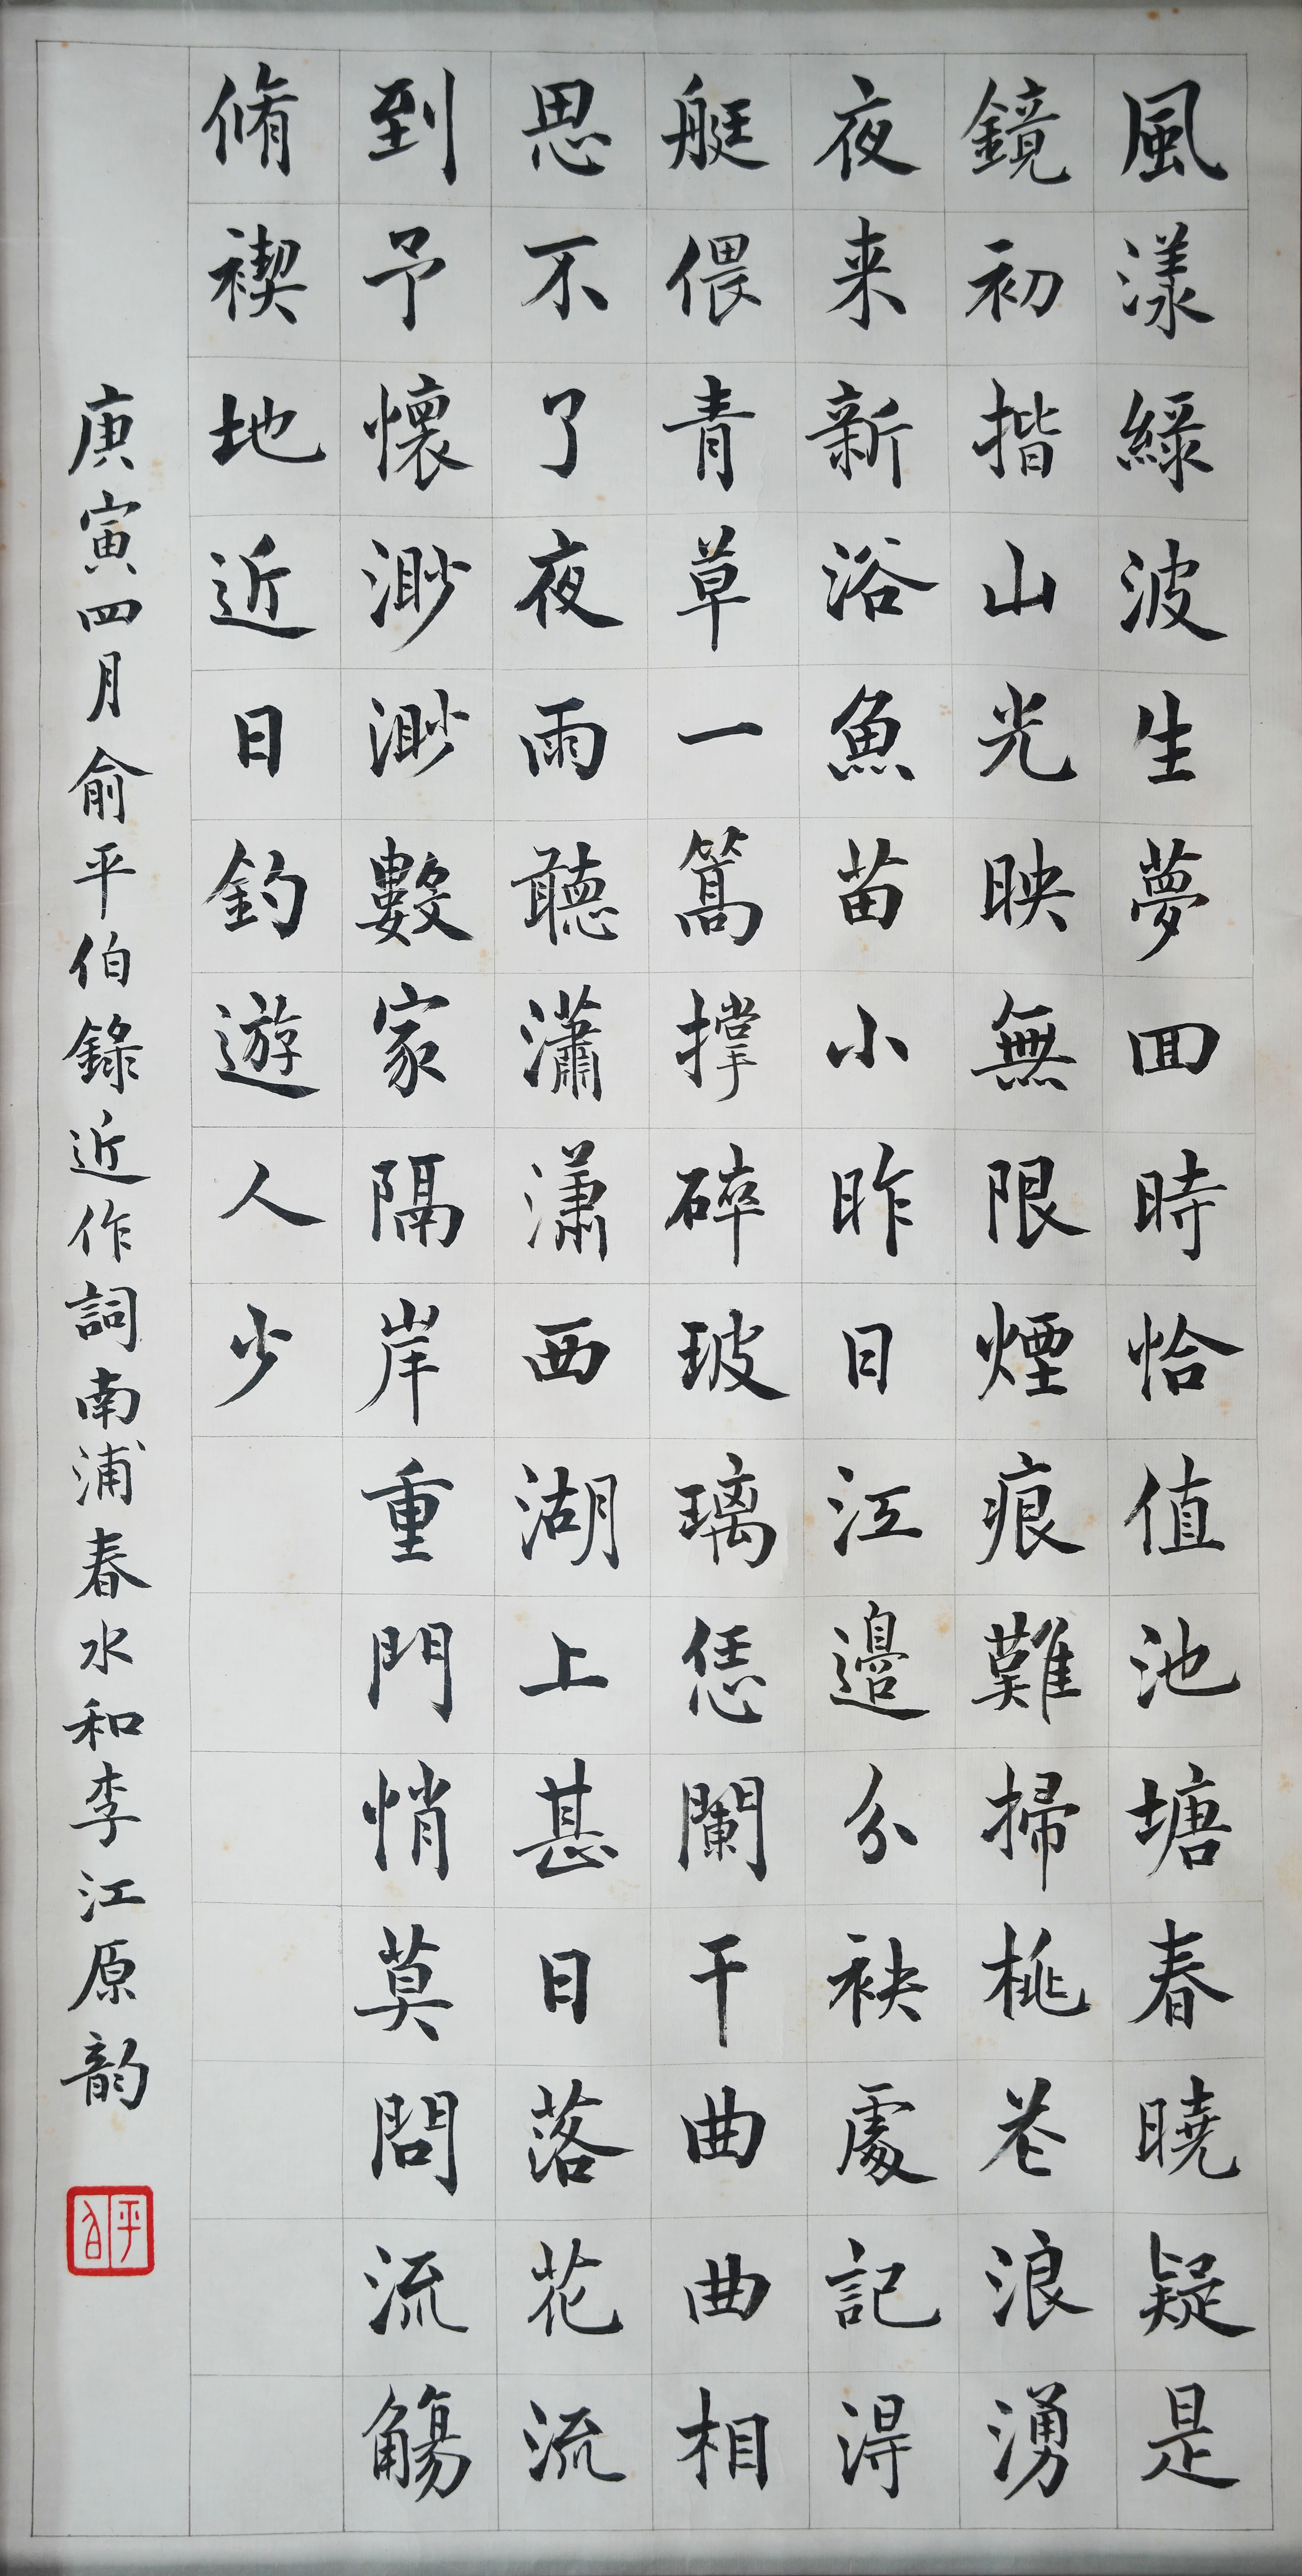 風漾綠波生夢回時恰值池塘春曉疑是
鏡初揩山光映無限煙痕難掃桃花浪湧
夜来新浴魚苗小昨日江邊分袂處記得
艇偎青草一篙撑碎玻璃恁闌干曲曲相
思不了夜雨聽瀟瀟西湖上甚日落花流
到予懷渺渺數家隔岸重門悄莫問流觴
脩禊地近日釣遊人少
庚寅四月俞平伯錄近作詞南浦春水和李江原韵
平白